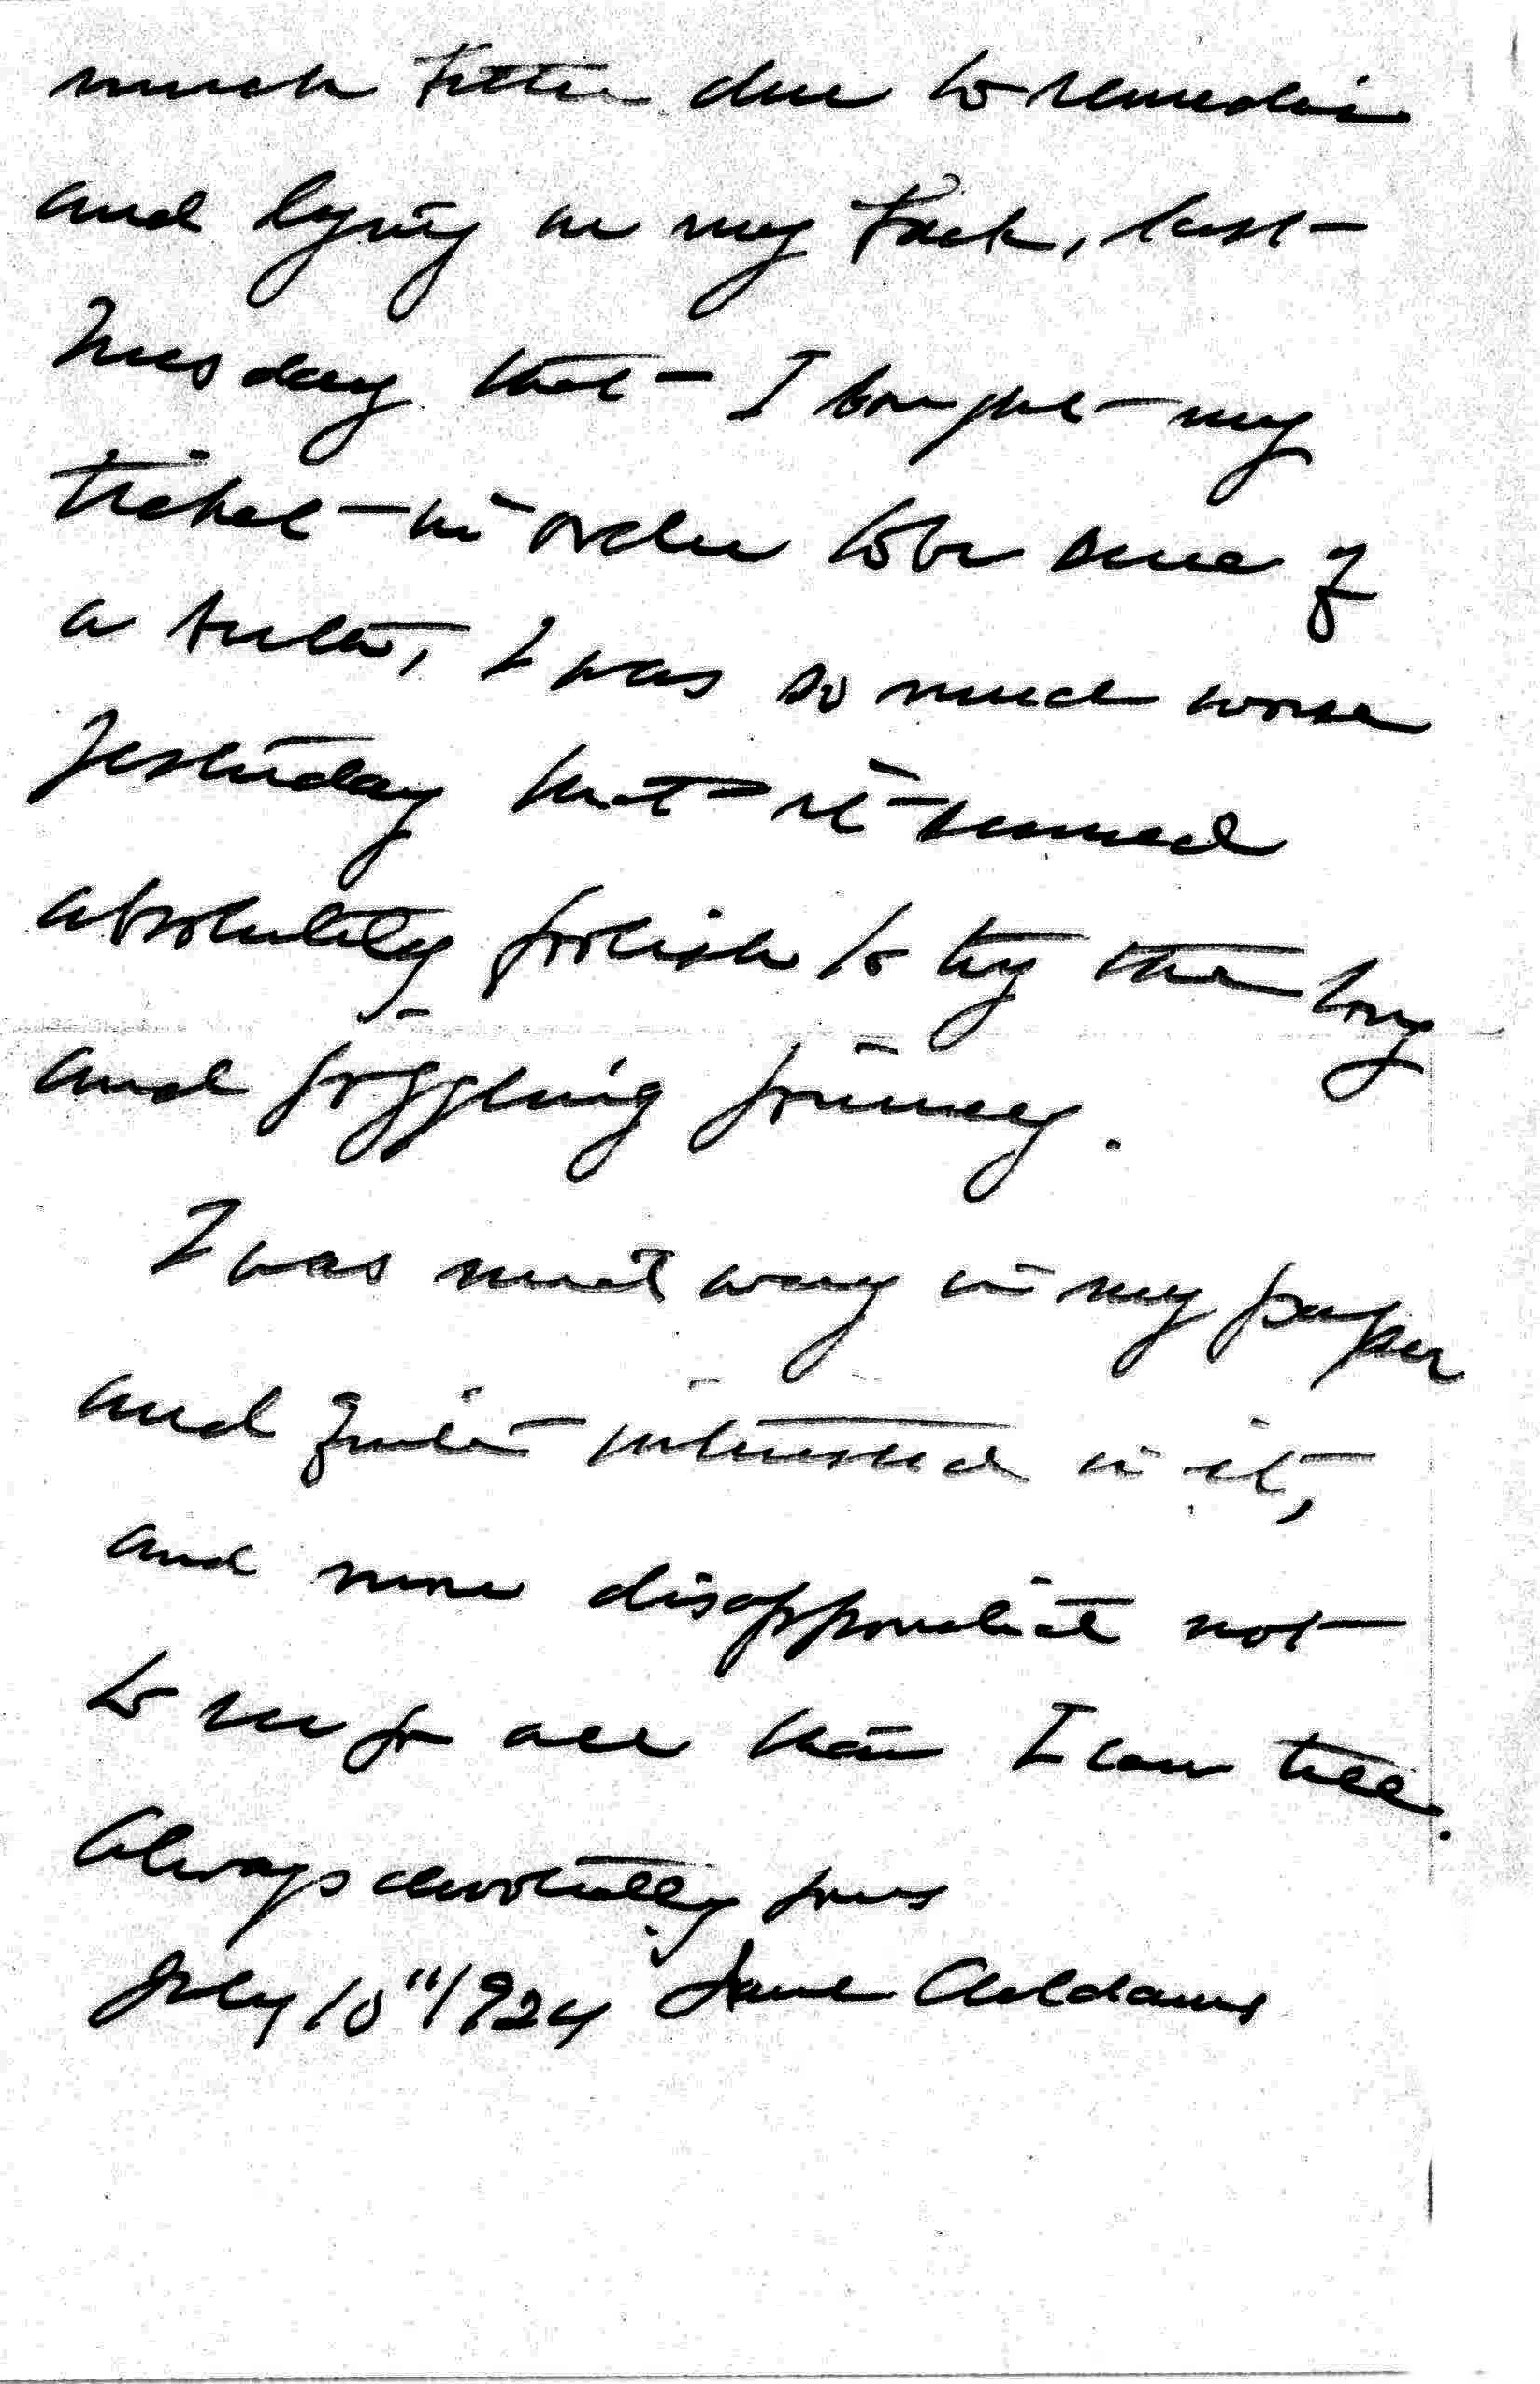 much better due to remedies
and lying on my back, last
Tuesday that I bought my
ticket in order to be sure of
a berth, I was so much worse
yesterday that it seemed
absolutely foolish to try the long
and joggling journey.
I was mid way in my paper
and quite interested in it,
and more disappointed not
to for all than I can tell.
Always devotedly yours
July 10" 1924 Jane Addams